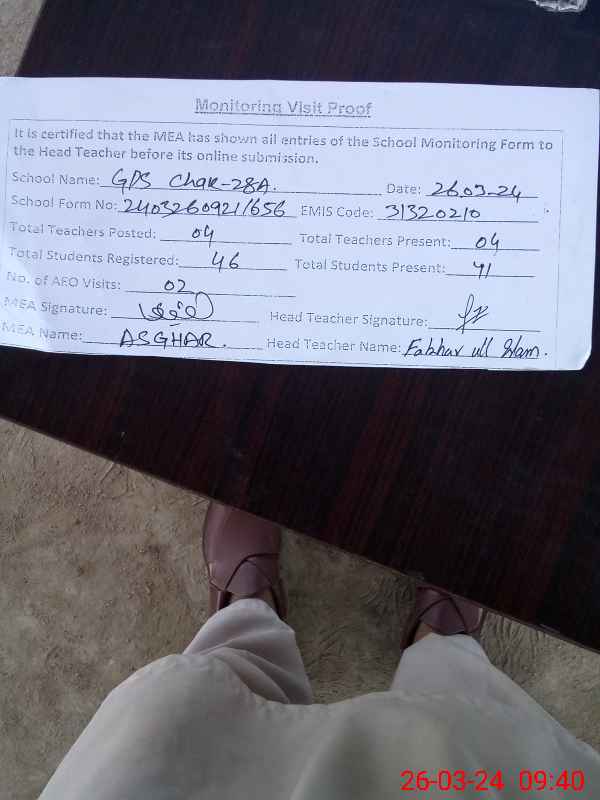 Monitoring Visit Proof
It is certified that the MEA has shown all entries of the School Monitoring Form to
the Head Teacher before its online submission.
School Name: GPS Chak-28A. Date: 26.03-24
School Form No: 24032609211656 EMIS Code: 31320210
Total Teachers Posted: 04 Total Teachers Present: 04
Total Students Registered: 46 Total Students Present: 41
No. of AEO Visits: 02
MEA Signature: Head Teacher Signature:
MEA Name: ASGHAR. Head Teacher Name: ull Islam.
26-03-24 09:40